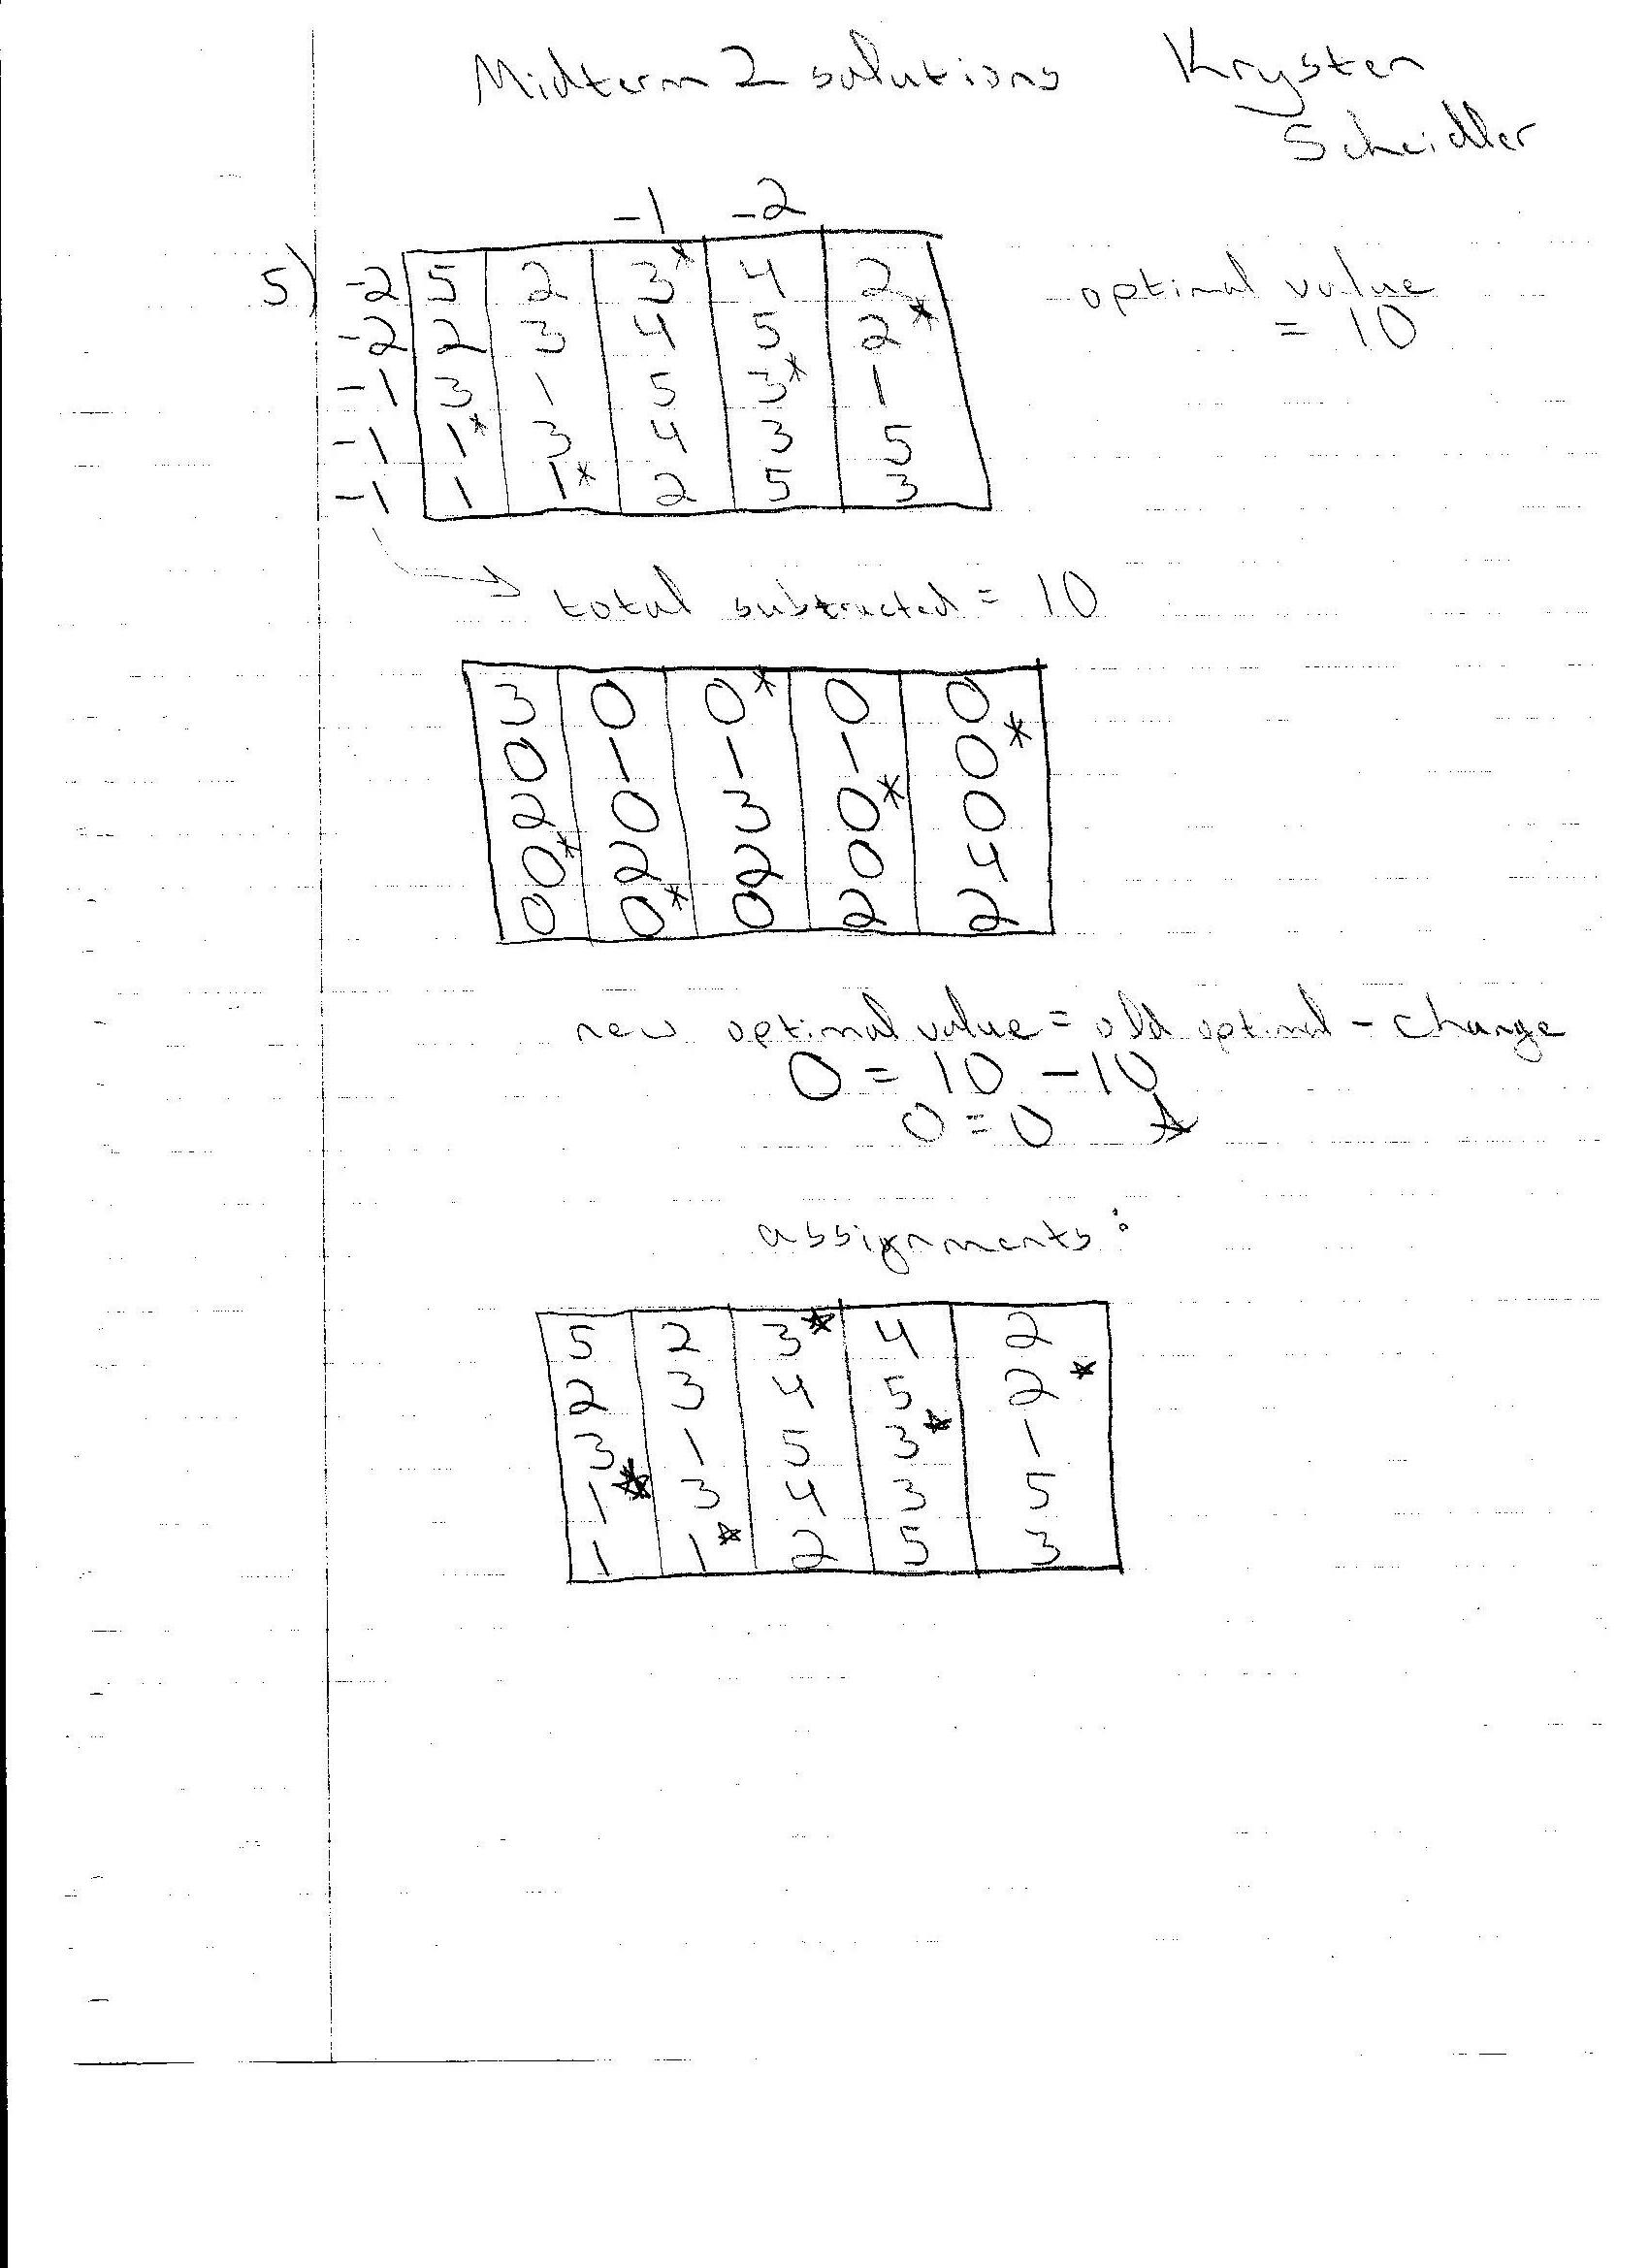 Midterm 2 solutions Krysten
Scheidler
-1 -2
5) -2 5 2 3* 4 2 optimal value
-2 2 3 4 5 2* = 10
-1 3 1 5 3* 1
-1 1* 3 4 3 5
-1 1 1* 2 5 3
→ total subtracted = 10
3 0 0* 0 0
0 1 1 1 0*
2 0 3 0* 0
0* 2 2 0 4
0 0* 0 2 2
new optimal value = old optimal - change
0 = 10 - 10
0 = 0 ☆
assignments:
5 2 3* 4 2
2 3 4 5 2*
3 1 5 3* 1
1* 3 4 3 5
1 1* 2 5 3